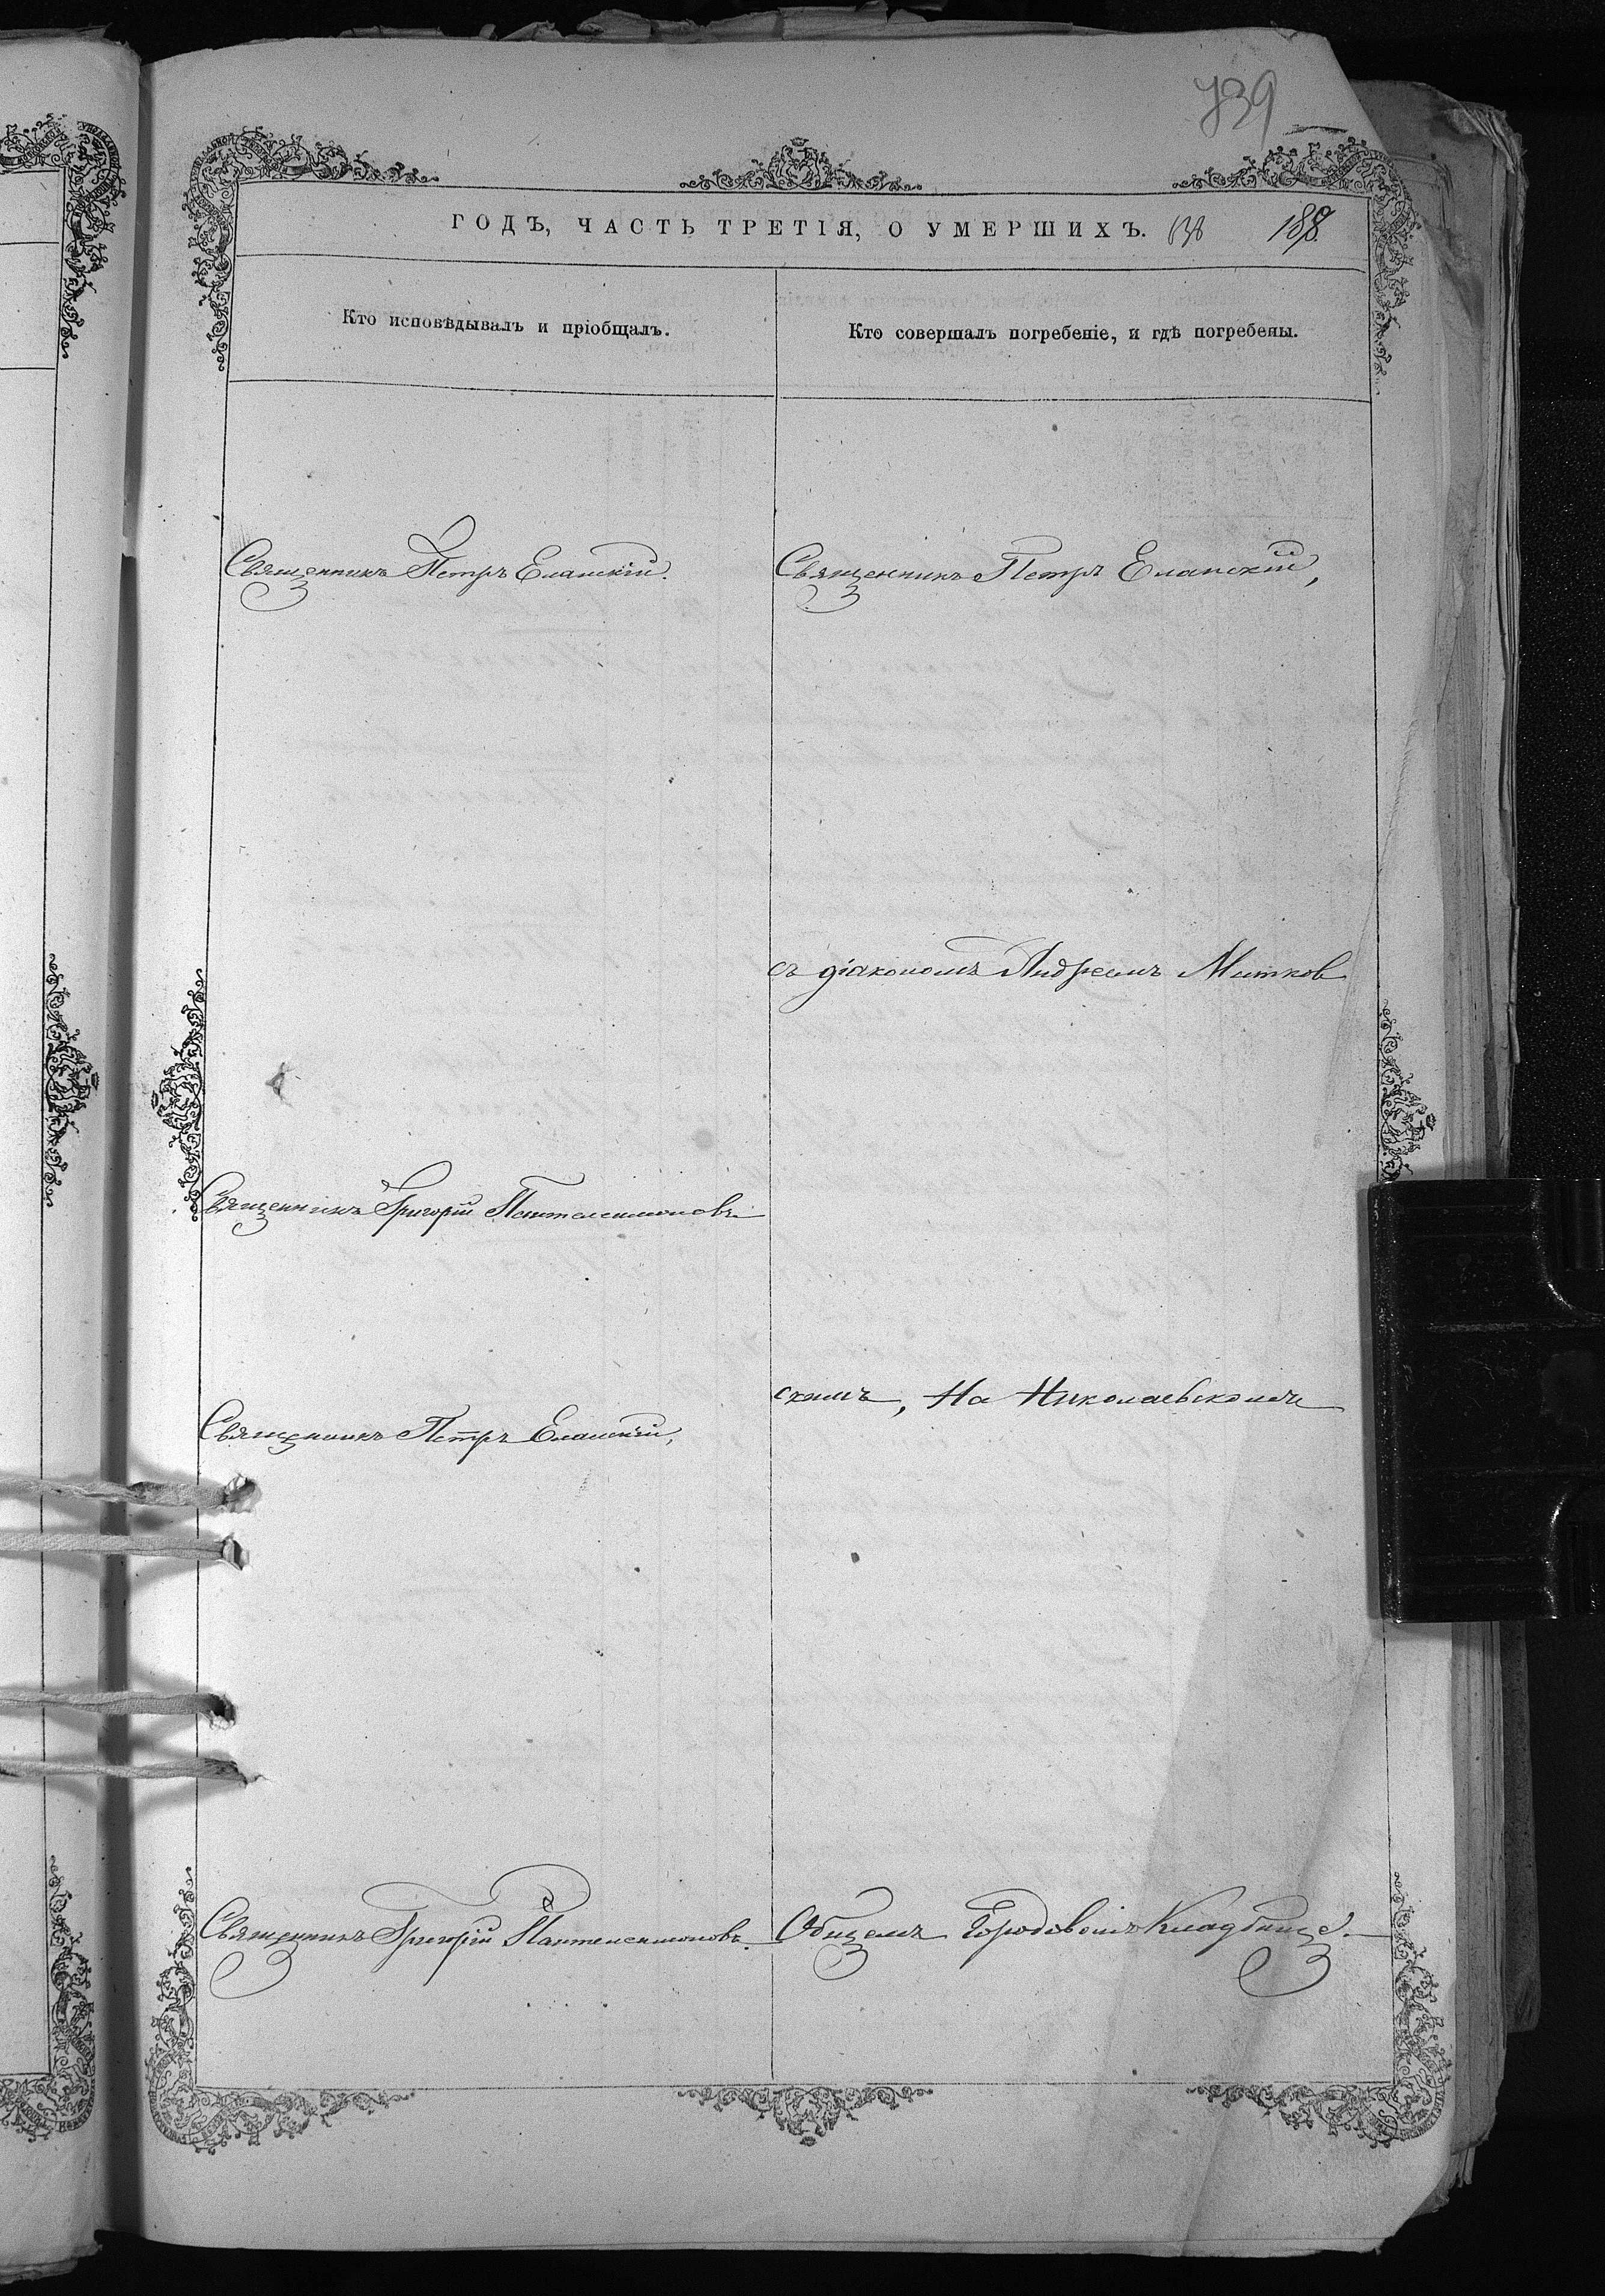 739
ГОДЪ, ЧАСТЬ ТРЕТІЯ, О УМЕРШИХЪ.
Кто исповѣдывалъ и пріобщалъ.
Кто совершалъ погребеніе, и гдѣ погребены.
Священникъ Петръ Еланскій.
Священникъ Петръ Еланскій,
съ діакономъ Андреемъ Митков
Священникъ Григорій Пантелеимоновъ
скимъ, На Николаевскомъ
Священникъ Петръ Еланскій,
Священникъ Григорій Пантелеимоновъ.
Общемъ Городовомъ Кладбище.